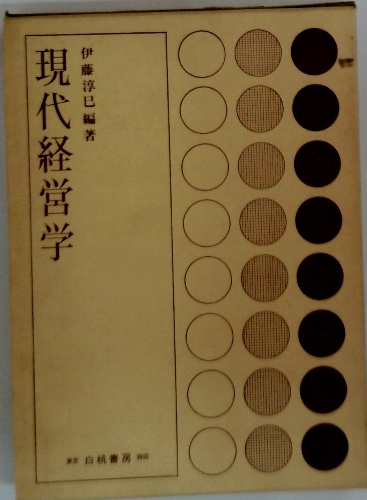 現代経営学
伊藤淳巳編著
東京 白桃書房